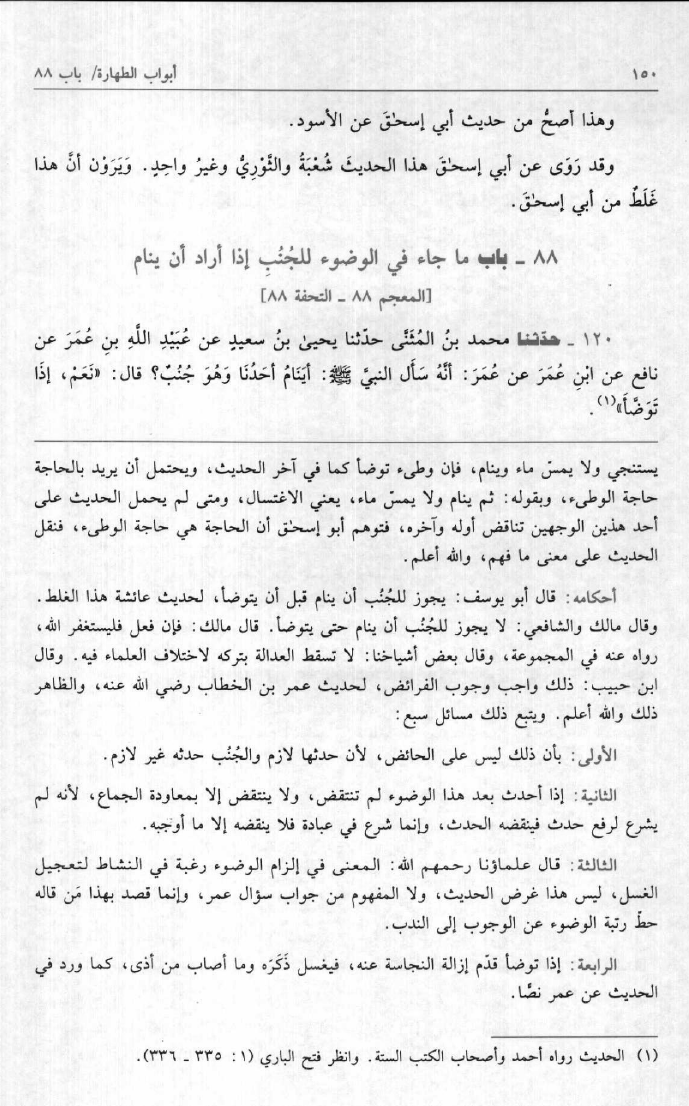 ١٥٠ أبواب الطهارة/ باب ٨٨
وهذا أصحُّ من حديث أبي إسحٰقَ عن الأسود.
وقد رَوَى عن أبي إسحٰقَ هذا الحديثَ شُعْبَةُ والثَّوْرِيُّ وغيرُ واحدٍ. وَيَرَوْن أنَّ هذا
غَلَطٌ من أبي إسحٰقَ.
٨٨ ـ باب ما جاء في الوضوء للجُنُبِ إذا أراد أن ينام
[المعجم ٨٨ ـ التحفة ٨٨]
١٢٠ ـ حدّثنا محمد بنُ المُثَنَّى حدّثنا يحيىٰ بنُ سعيدٍ عن عُبَيْدِ اللَّهِ بنِ عُمَرَ عن
نافع عن ابْنِ عُمَرَ عن عُمَرَ: أنَّهُ سَأَل النبيَّ ﷺ: أيَنَامُ أحَدُنَا وَهُوَ جُنُبٌ؟ قال: «نَعَمْ، إذَا
تَوَضَّأَ»(١).
يستنجي ولا يمسّ ماء وينام، فإن وطىء توضأ كما في آخر الحديث، ويحتمل أن يريد بالحاجة
حاجة الوطىء، وبقوله: ثم ينام ولا يمسّ ماء، يعني الاغتسال، ومتى لم يحمل الحديث على
أحد هذين الوجهين تناقض أوله وآخره، فتوهم أبو إسحٰق أن الحاجة هي حاجة الوطىء، فنقل
الحديث على معنى ما فهم، والله أعلم.
أحكامه: قال أبو يوسف: يجوز للجُنُب أن ينام قبل أن يتوضأ، لحديث عائشة هذا الغلط.
وقال مالك والشافعي: لا يجوز للجُنُب أن ينام حتى يتوضأ. قال مالك: فإن فعل فليستغفر الله،
رواه عنه في المجموعة، وقال بعض أشياخنا: لا تسقط العدالة بتركه لاختلاف العلماء فيه. وقال
ابن حبيب: ذلك واجب وجوب الفرائض، لحديث عمر بن الخطاب رضي الله عنه، والظاهر
ذلك والله أعلم. ويتبع ذلك مسائل سبع:
الأولى: بأن ذلك ليس على الحائض، لأن حدثها لازم والجُنُب حدثه غير لازم.
الثانية: إذا أحدث بعد هذا الوضوء لم تنتقض، ولا ينتقض إلا بمعاودة الجماع، لأنه لم
يشرع لرفع حدث فينقضه الحدث، وإنما شرع في عبادة فلا ينقضه إلا ما أوجبه.
الثالثة: قال علماؤنا رحمهم الله: المعنى في إلزام الوضوء رغبة في النشاط لتعجيل
الغسل، ليس هذا غرض الحديث، ولا المفهوم من جواب سؤال عمر، وإنما قصد بهذا مَن قاله
حطّ رتبة الوضوء عن الوجوب إلى الندب.
الرابعة: إذا توضأ قدّم إزالة النجاسة عنه، فيغسل ذَكَرَه وما أصاب من أذى، كما ورد في
الحديث عن عمر نصًّا.
(١) الحديث رواه أحمد وأصحاب الكتب الستة. وانظر فتح الباري (١: ٣٣٥ ـ ٣٣٦).